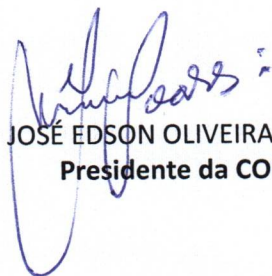 JOSÉ EDSON OLIVEIRA
Presidente da CO